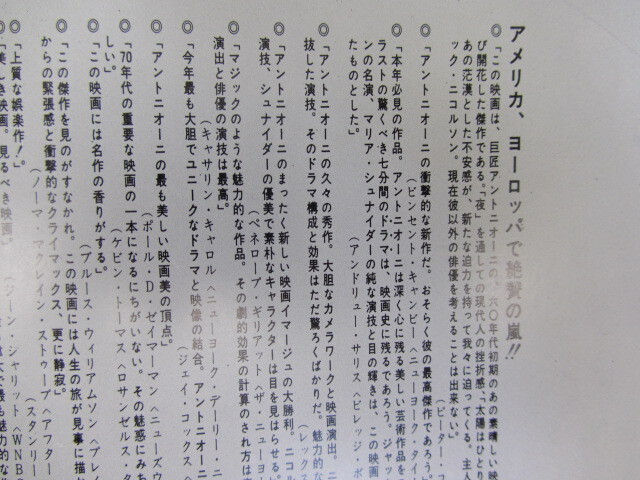 アメリカ、ヨーロッパで絶賛の嵐!!
◎「この映画は、巨匠アントニオーニの、六〇年代初期のあの素晴しい映
び開花した傑作である。「夜」を通しての現代人の挫折感、「太陽はひとり
あの茫漠とした不安感が、新たな迫力を持って我々に迫ってくる。主人
ック・ニコルソン。現在彼以外の俳優を考えることは出来ない。
(ピーター・コ
◎「アントニオーニの衝撃的な新作だ。おそらく彼の最高傑作であろう。
(ビンセント・キャンビー〈ニューヨーク・タイ
◎「本年必見の作品。アントニオーニは深く心に残る美しい芸術作品を
ラストの驚くべき七分間のドラマは、映画史に残るであろう。ジャッ
ンの名演、マリア・シュナイダーの純な演技と目の輝きは、この映画
たものとした」。
(アンドリュー・サリス〈ビレッジ・ボ
◎「アントニオーニの久々の秀作。大胆なカメラワークと映画演出。ニ
抜した演技。そのドラマ構成と効果はただ驚くばかりだ。魅力的な
(レックス
◎「アントニオーニのまったく新しい映画イマージュの大勝利。ニコル
演技、シュナイダーの優美で素朴なキャラクターは目を見はらせる。
(ペネロープ・ギリアット〈ザ・ニューヨ
◎「マジックのような魅力的な作品。その劇的効果の計算のされ方は
演出と俳優の演技は最高」。
(キャサリン・キャロル〈ニューヨーク・デーリー・ニ
◎「今年最も大胆でユニークなドラマと映像の結合。アントニオーニ
(ジェイ・コックス〈
◎「アントニオーニの最も美しい映画美の頂点」。
(ポール・D・ゼイマーマン〈ニューズウ
◎「70年代の重要な映画の一本になるにちがいない。その魅惑にみち
しい」。
(ケビン・トーマス〈ロサンゼルス・タ
◎「この映画には名作の香りがする」。
(ブルース・ウィリアムソン〈プレイ
◎「この傑作を見のがすなかれ。この映画には人生の旅が見事に描か
からの緊張感と衝撃的なクライマックス、更に静寂」。
(ノーマ・マクレイン・ストゥープ〈アフター
◎「上質な娯楽作!」。
(スタンリー
◎「美しき映画。見るべき映画」
ジーン・シャリット〈WNB